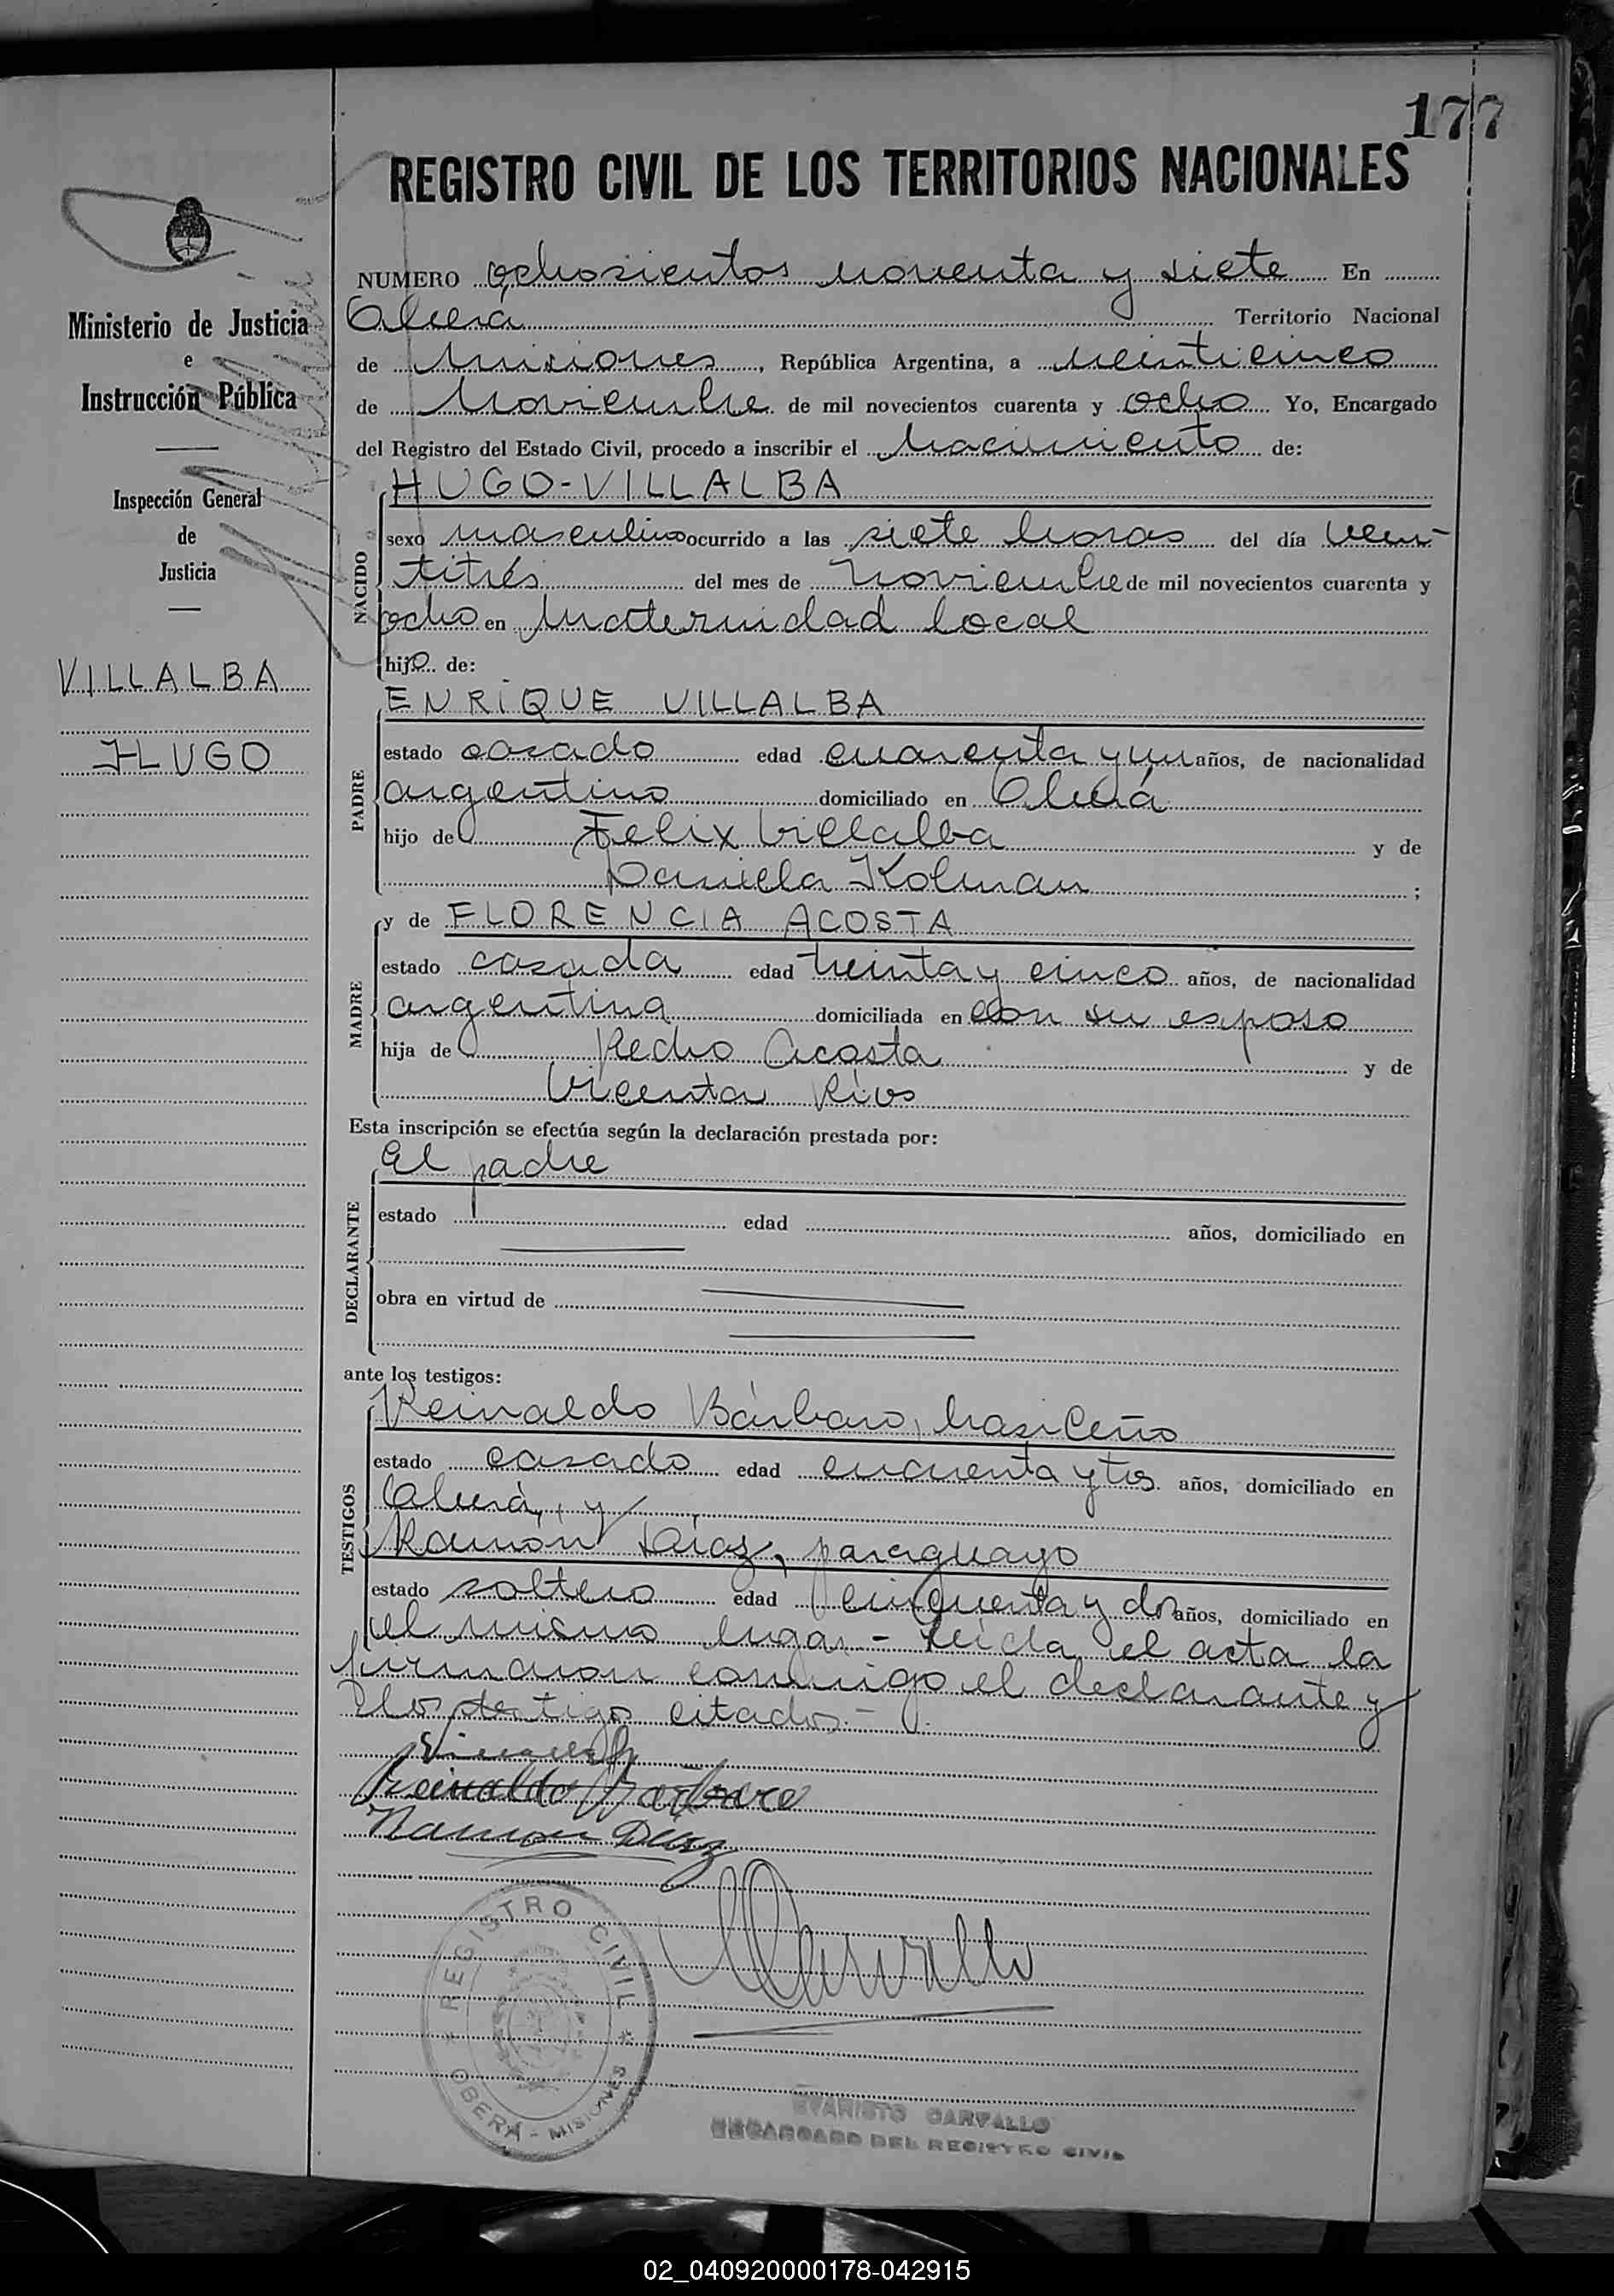 177
REGISTRO CIVIL DE LOS TERRITORIOS NACIONALES
Ministerio de Justicia
e
Instrucción Pública
Inspección General
de
Justicia
VILLALBA
HUGO
NUMERO ochosientos noventa y siete En
Oberá Territorio Nacional
de Misiones, República Argentina, a veinticinco
de Noviembre de mil novecientos cuarenta y ocho Yo, Encargado
del Registro del Estado Civil, procedo a inscribir el Nacimiento de:
NACIDO
HUGO-VILLALBA
sexo masculino ocurrido a las siete horas del día vein-
titrés del mes de Noviembre de mil novecientos cuarenta y
ocho en Maternidad local
hijo de:
PADRE
ENRIQUE VILLALBA
estado casado edad cuarenta y un años, de nacionalidad
argentino domiciliado en Oberá
hijo de Felix Villalba y de
Daniela Kolman ;
MADRE
y de FLORENCIA ACOSTA
estado casada edad treinta y cinco años, de nacionalidad
argentina domiciliada en con su esposo
hija de Pedro Acosta y de
Vicenta Rios
Esta inscripción se efectúa según la declaración prestada por:
DECLARANTE
El padre
estado edad años, domiciliado en
obra en virtud de
ante los testigos:
TESTIGOS
Reinaldo Bárbaro, brasileño
estado casado edad cuarenta y tres años, domiciliado en
Oberá, y
Ramón Díaz, paraguayo
estado soltero edad cincuenta y dos años, domiciliado en
el mismo lugar - Leída el acta la
firmaron conmigo el declarante y
los testigos citados.-
Reinaldo Barbaro
Ramon Diaz
REGISTRO CIVIL
OBERÁ - MISIONES
EVARISTO CARVALLO
ENCARGADO DEL REGISTRO CIVIL
02_040920000178-042915